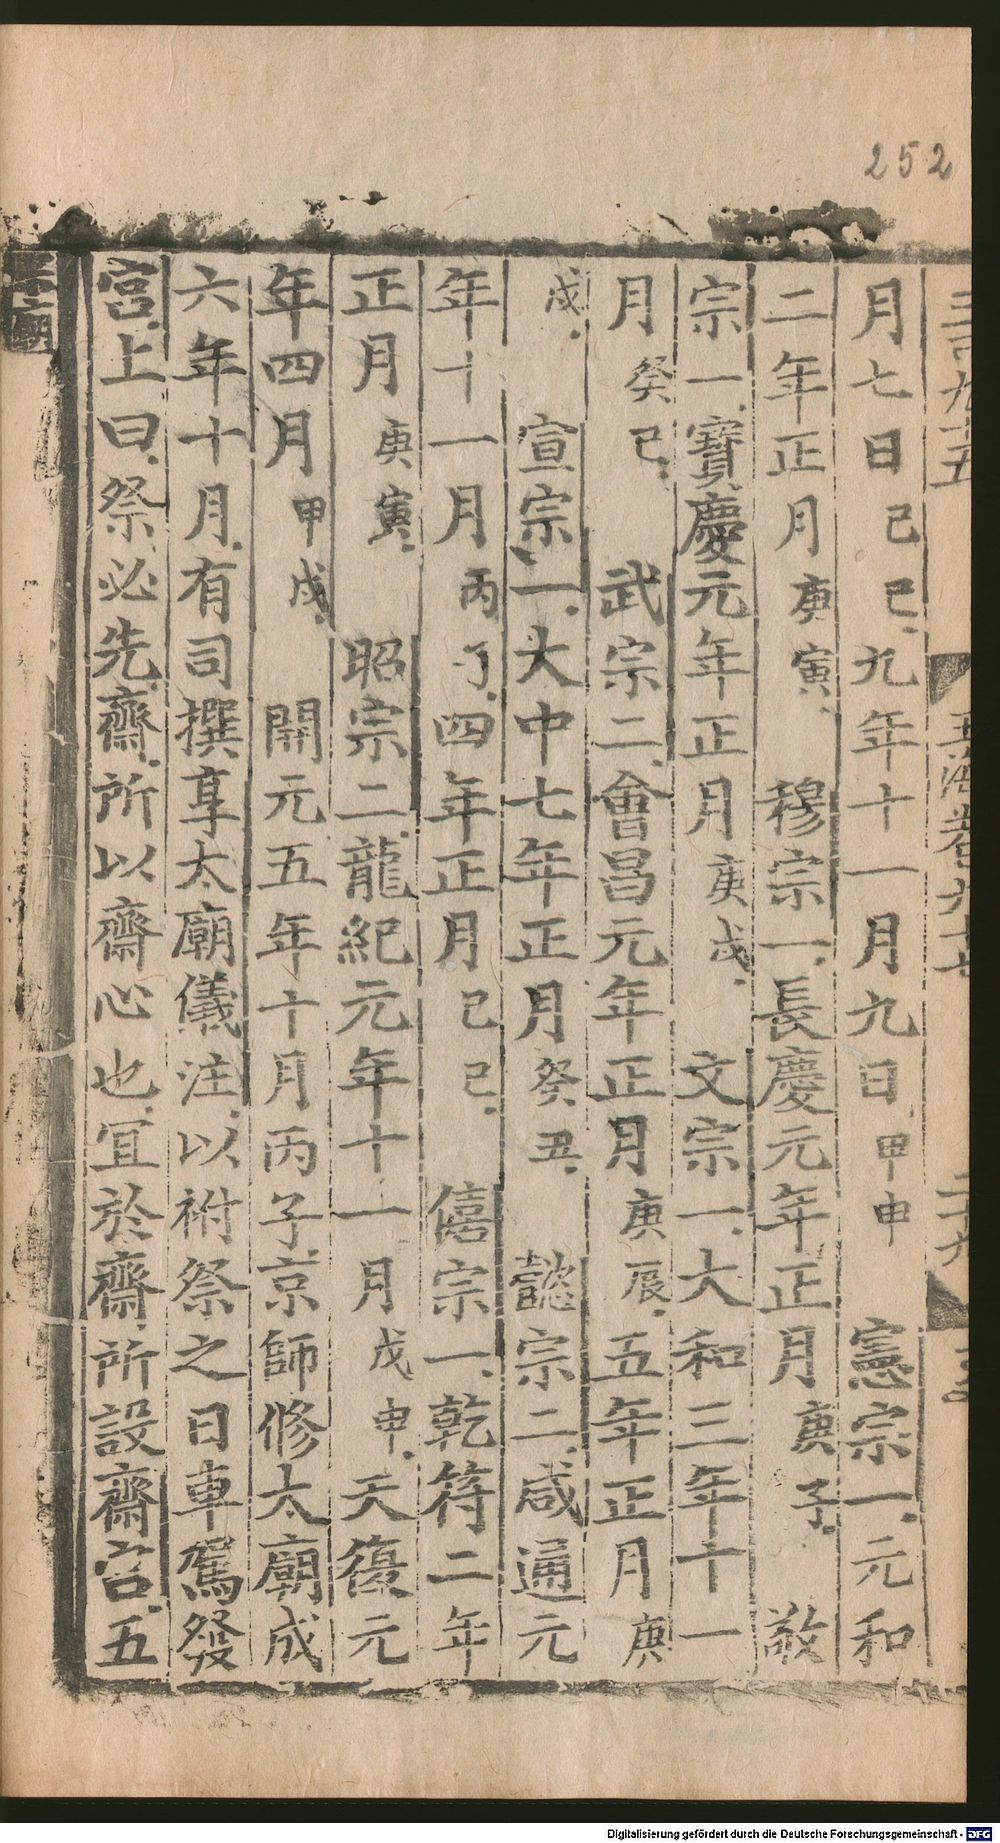 252
三百九十五 玉海卷九十七 二十六
月七日己巳九年十一月九日甲申 憲宗一元和
二年正月庚寅 穆宗一長慶元年正月庚子 敬
宗一寶慶元年正月庚戌 文宗一大和三年十一
月癸巳 武宗二會昌元年正月庚辰五年正月庚
戌 宣宗一大中七年正月癸丑 懿宗二咸通元
年十一月丙丁四年正月己巳 僖宗一乾符二年
正月庚寅 昭宗二龍紀元年十一月戊申天復元
年四月甲戌 開元五年十月丙子京師修太廟成
六年十月有司撰享太廟儀注以祔祭之日車駕發
宮上曰祭必先齋所以齋心也宜於齋所設齋宮五
Digitalisierung gefördert durch die Deutsche Forschungsgemeinschaft - DFG